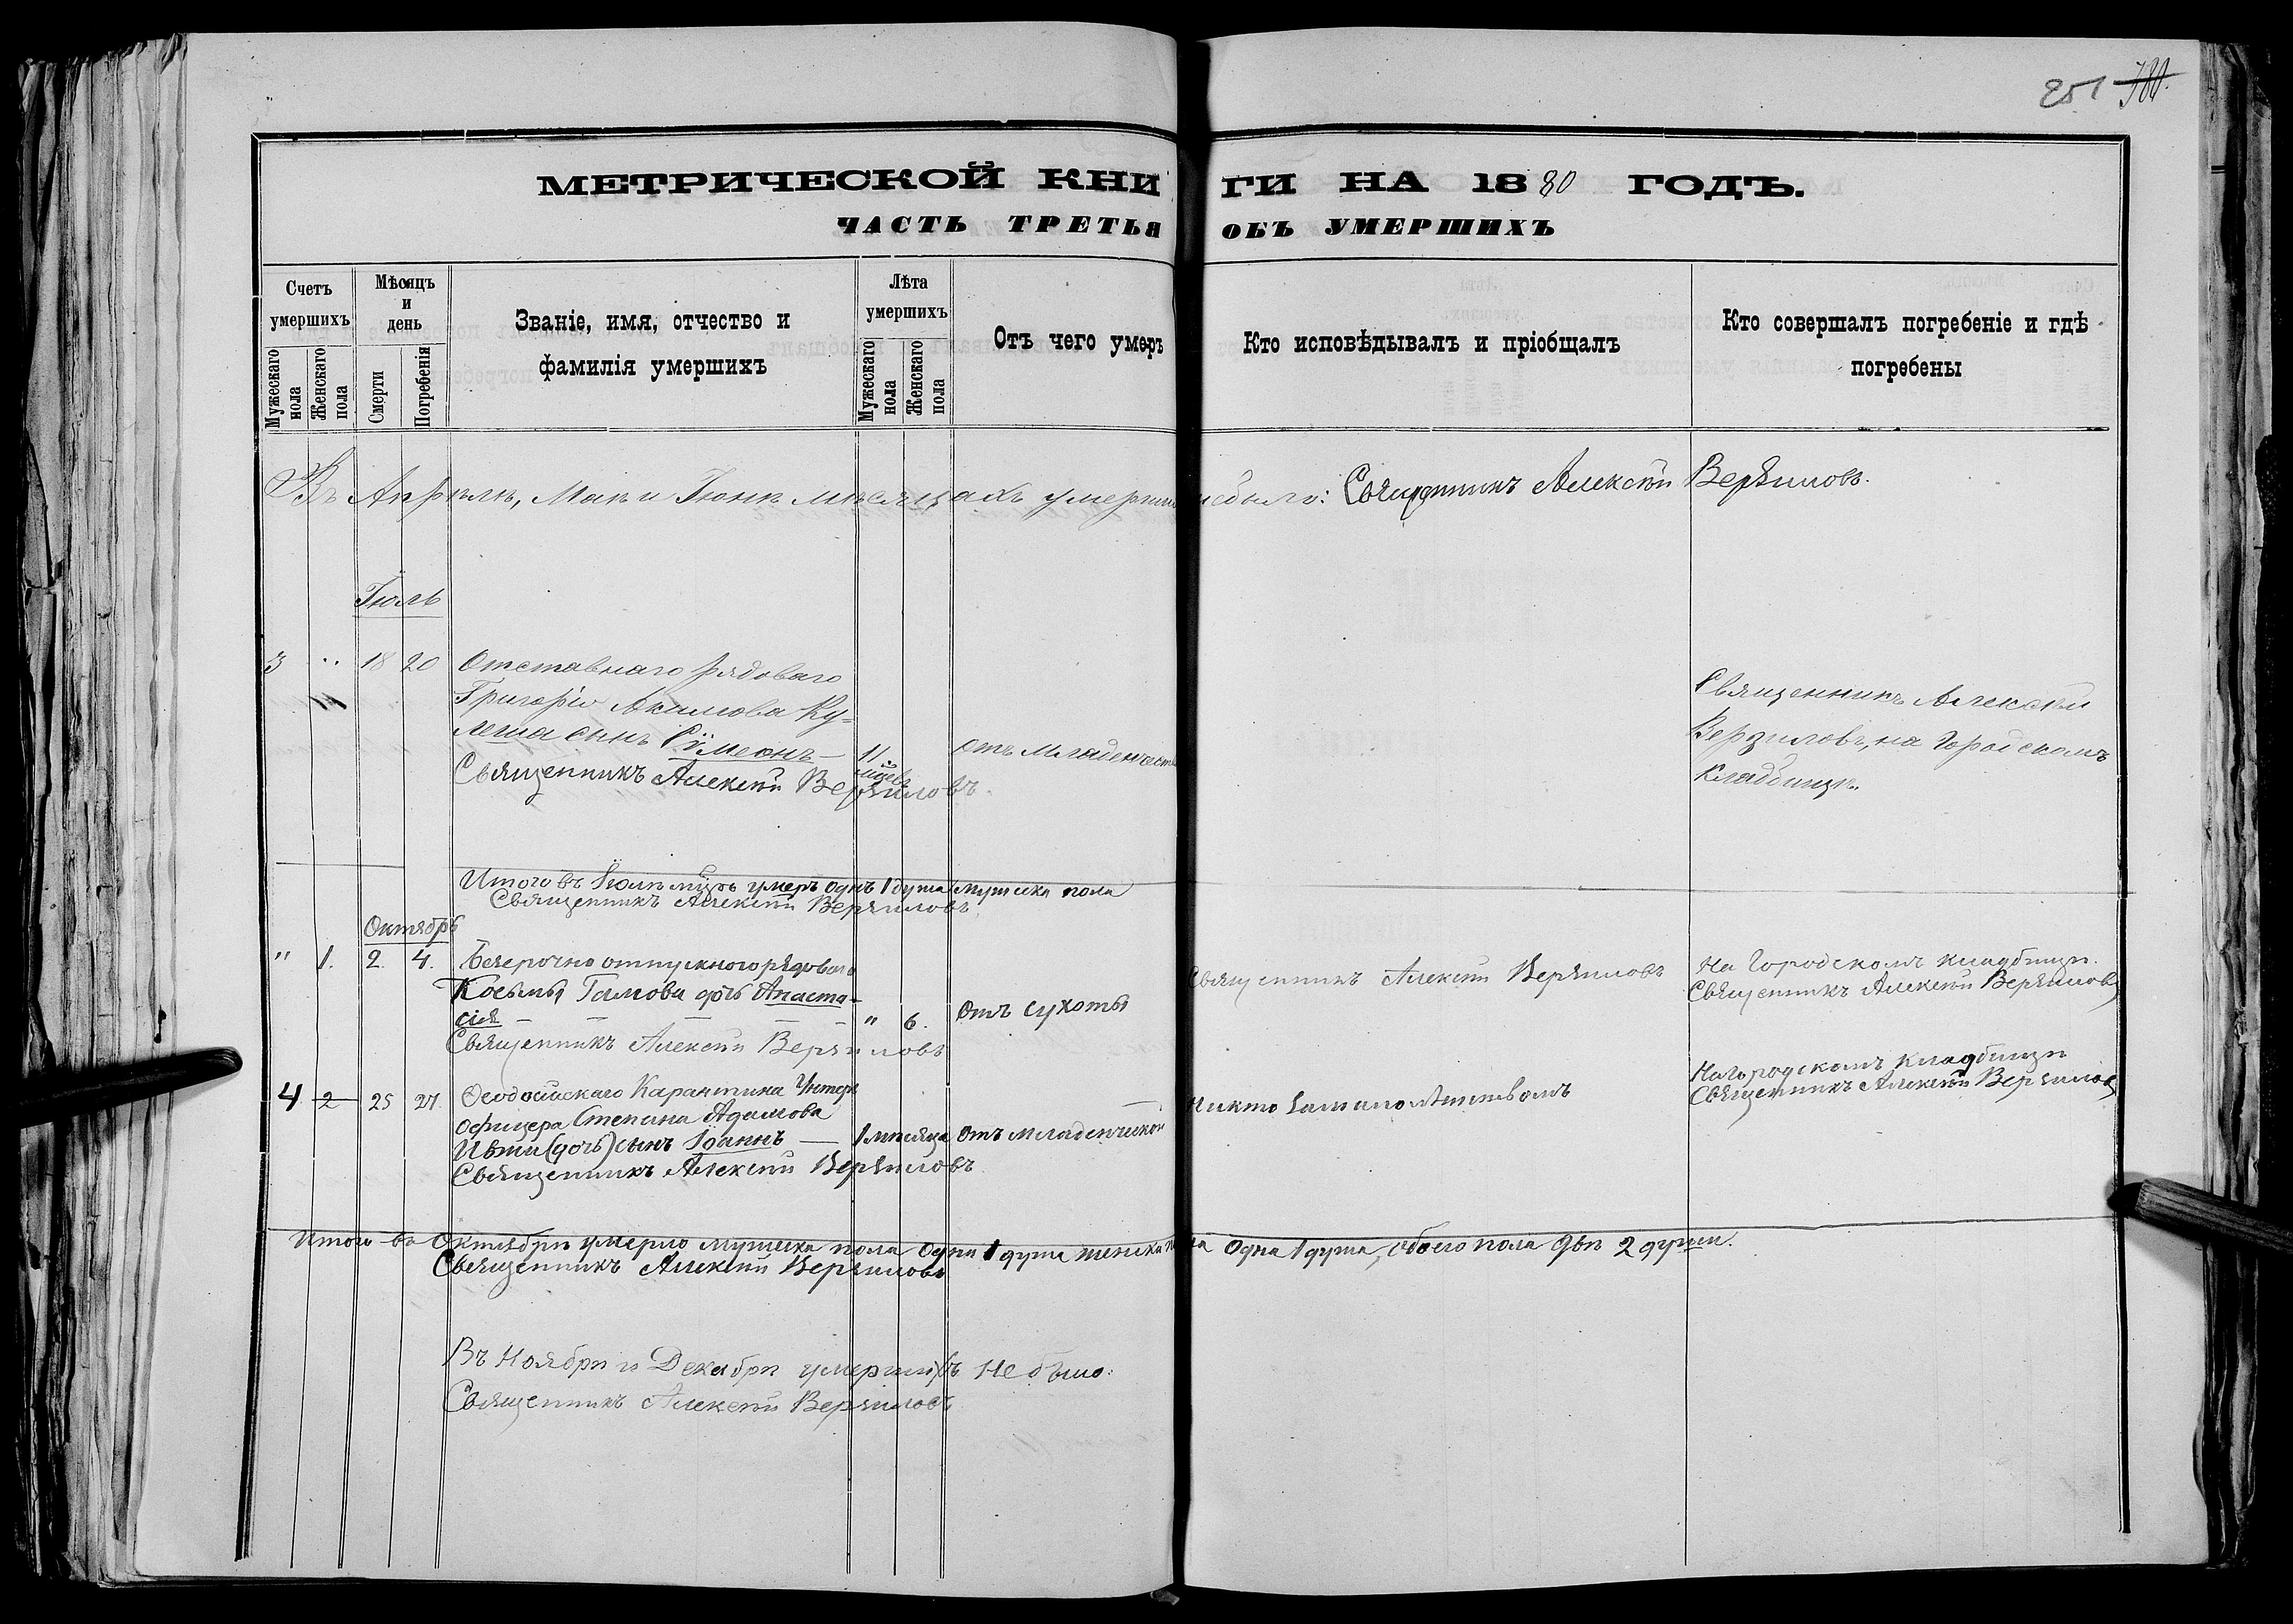 251 788.
МЕТРИЧЕСКОЙ КНИГИ НА 1880 ГОДЪ.
ЧАСТЬ ТРЕТЬЯ ОБЪ УМЕРШИХЪ
Счетъ умершихъ
Мужескаго пола
Женскаго пола
Мѣсяцъ и день
Смерти
Погребенія
Званіе, имя, отчество и фамилія умершихъ
Лѣта умершихъ
Мужескаго пола
Женскаго пола
Отъ чего умеръ
Кто исповѣдывалъ и пріобщалъ
Кто совершалъ погребеніе и гдѣ погребены
Въ Апрѣлѣ, Маѣ и Іюнѣ мѣсяцахъ умершихъ небыло: Священникъ Алексѣй Верзиловъ.
Іюль
3 " 18 20 Отставнаго рядоваго
Григорія Акимова Ку-
леша сынъ Сѵмеонъ — 11 мцевъ отъ младенчест
Священникъ Алексѣй Верзиловъ.
Священникъ Алексѣй
Верзиловъ, на Городскомъ
кладбищѣ.
Итого въ Іюлѣ мцѣ умеръ однъ 1 душа мужска пола
Священникъ Алексѣй Верзиловъ
Октябрь
" 1. 2. 4. Безсрочно отпускного рядоваго
Косьмы Гамова дочь Анаста-
сія — — — — — " 6. отъ сухоты
Священникъ Алексѣй Верзиловъ
Священникъ Алексѣй Верзиловъ
На Городскомъ кладбищѣ.
Священникъ Алексѣй Верзиловъ
4 2 25 27. Ѳеодосійскаго Карантина Унтеръ
офицера Степана Адамова
Ивти (дочь) сынъ Іоаннъ — 1 мѣсяца отъ младенческой
Священникъ Алексѣй Верзиловъ
Никто за малолѣтствомъ
На городскомъ кладбищѣ
Священникъ Алексѣй Верзиловъ
Итого въ Октябрѣ умерло мужска пола одна 1 душа женска пола одна 1 душа, обоего пола двѣ 2 души.
Священникъ Алексѣй Верзиловъ
Въ Ноябрѣ и Декабрѣ умершихъ не было:
Священникъ Алексѣй Верзиловъ